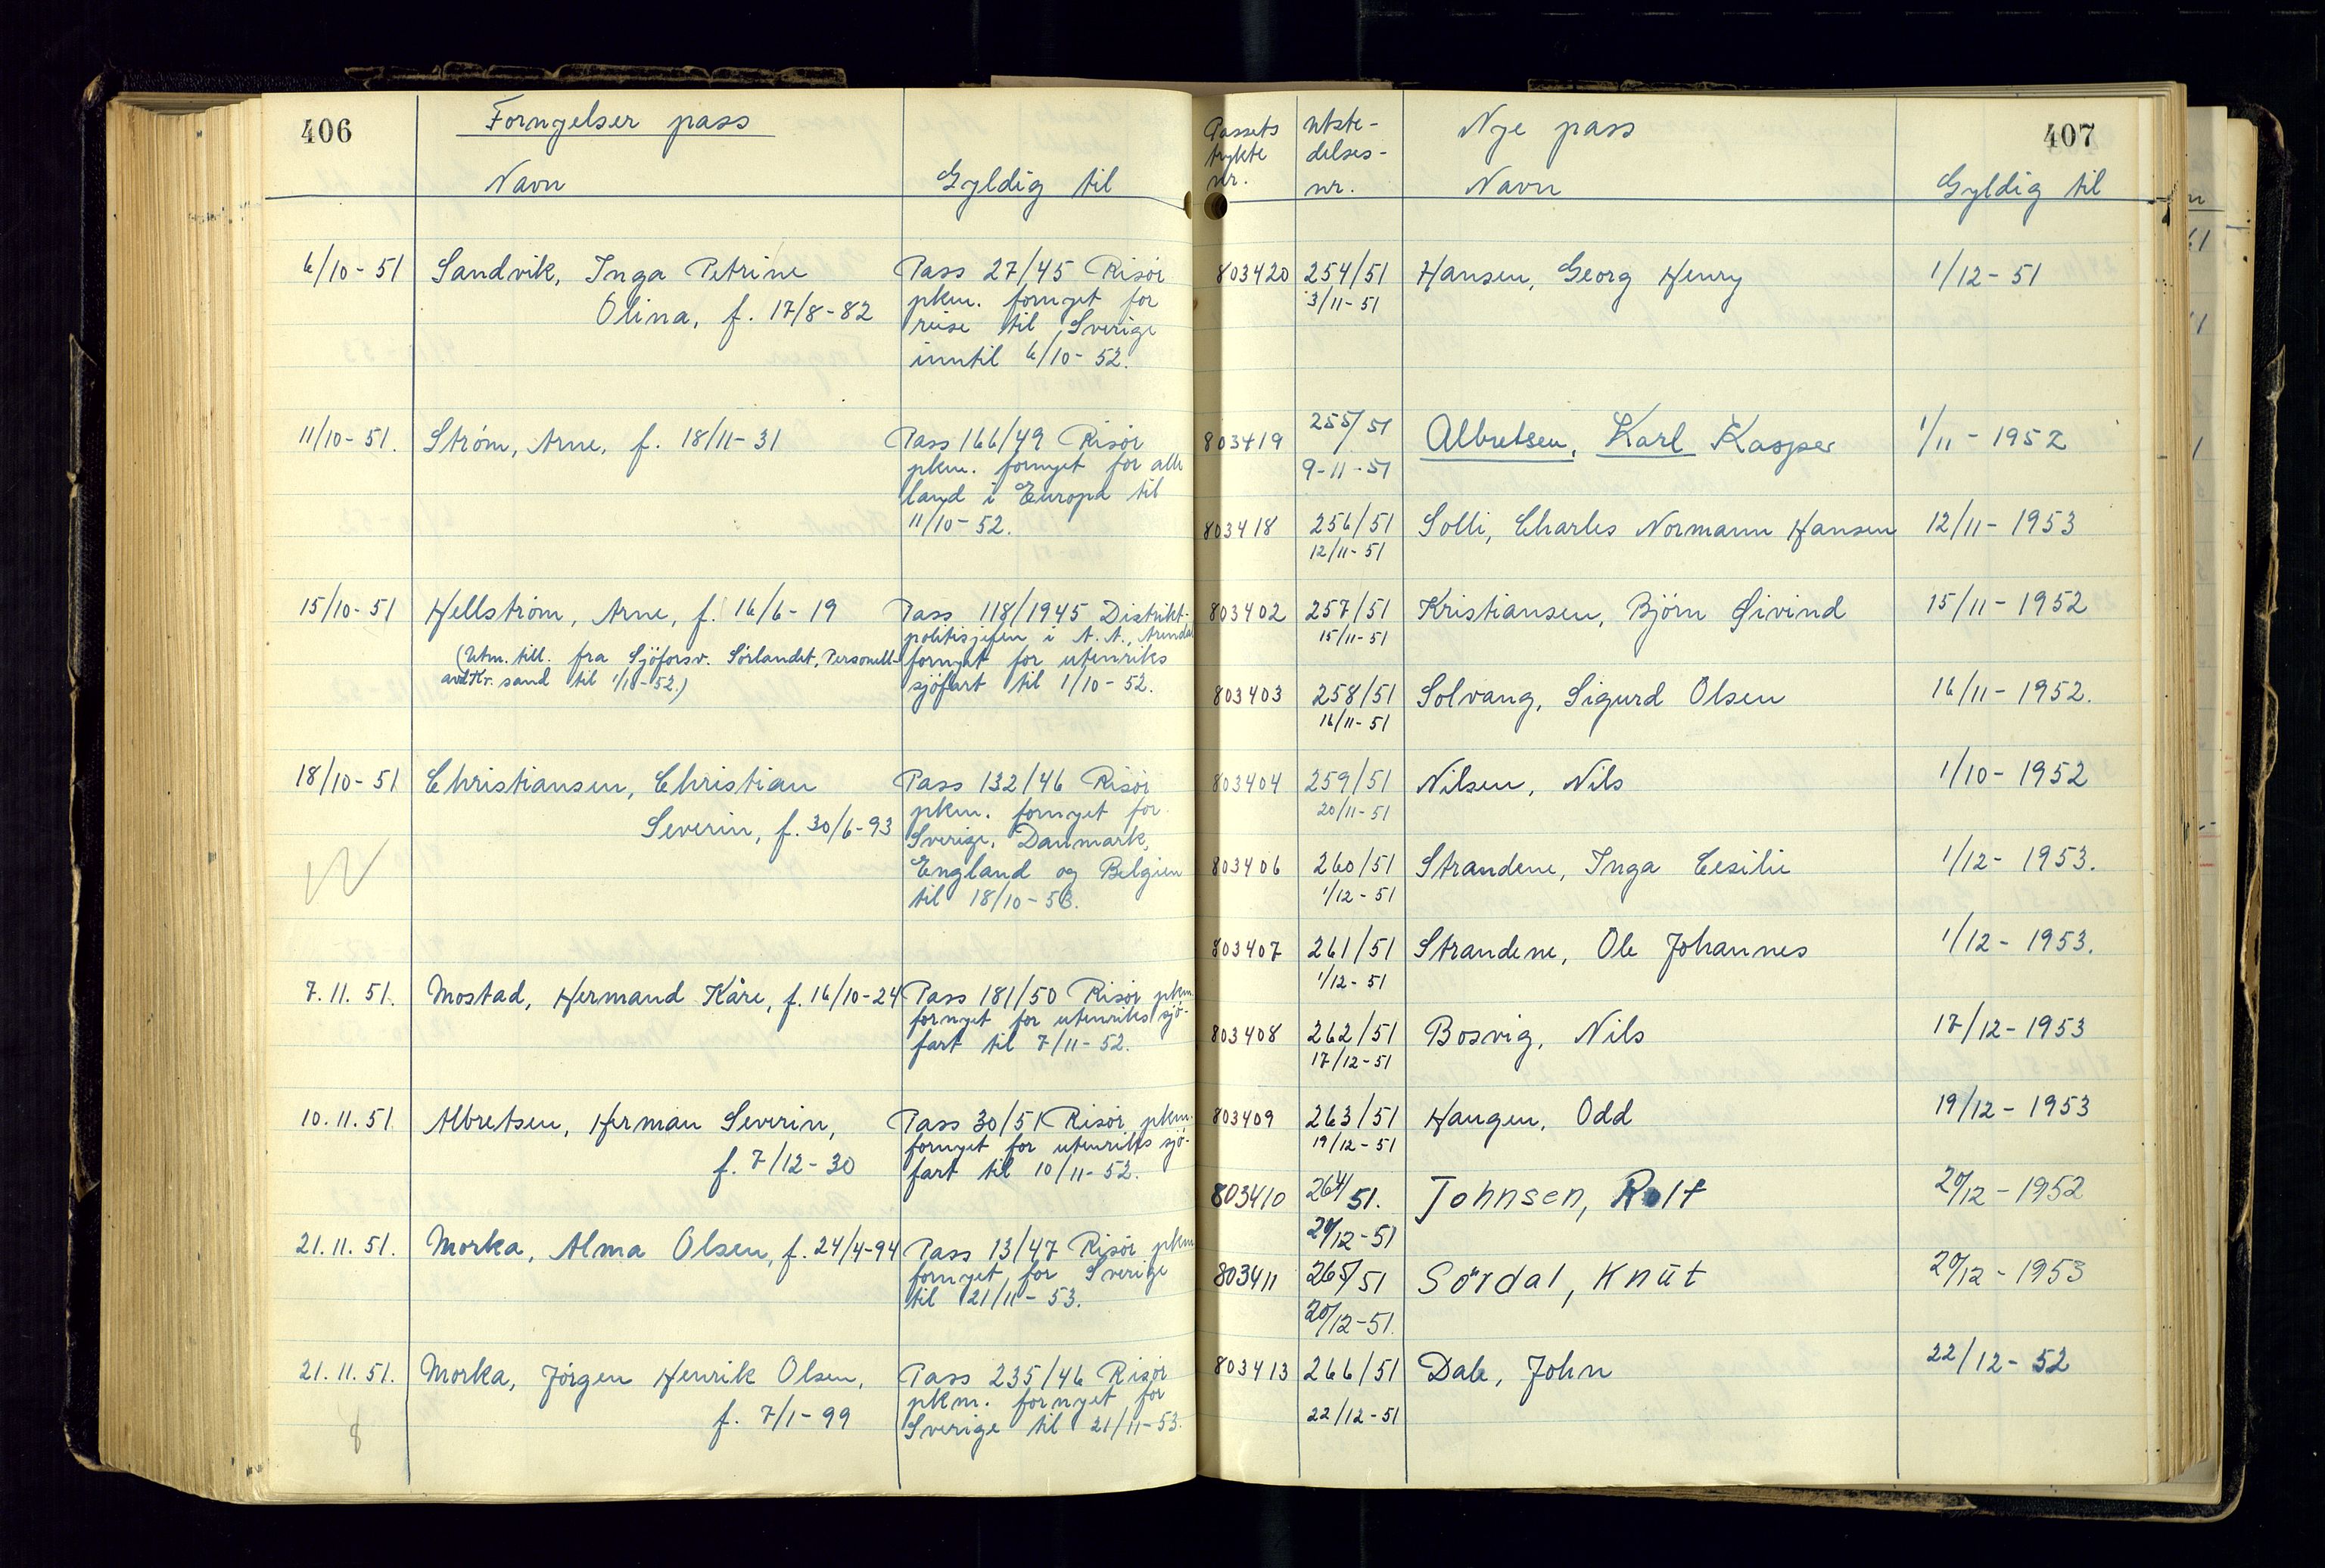 406
Fornyelser pass
Navn
Gyldig til
6/10-51 Sandvik, Inga Petrine
Olina, f. 17/8-82
Pass 27/45 Risör
pkm. fornyet for
reise til Sverige
inntil 6/10-52.
11/10-51. Ström, Arne, f. 18/11-31
Pass 166/49 Risör
pkm. fornyet for alle
land i Europa til
11/10-52.
15/10-51 Hellström, Arne, f. 16/6-19
(Utm. till. fra Sjöforsv. Sörlandet, Personell-
avd Kr. sand til 1/10-52.)
Pass 118/1945 Distrikt-
politisjefen i A. A., Arendal
fornyet for utenriks
sjöfart til 1/10-52.
18/10-51 Christiansen, Christian
Severin, f. 30/6-93
Pass 132/46 Risör
pkm. fornyet for
Sverige, Danmark,
England og Belgien
til 18/10-53.
7.11.51. Mostad, Hermand Kåre, f. 16/10-24
Pass 181/50 Risör pkm.
fornyet for utenriks sjö-
fart til 7/11-52.
10.11.51 Albretsen, Herman Severin,
f. 7/12-30
Pass 30/51 Risör pkm.
fornyet for utenriks sjö-
fart til 10/11-52.
21.11.51. Morka, Alma Olsen, f. 24/4-94
Pass 13/47 Risör pkm
fornyet for Sverige
til 21/11-53.
21.11.51. Morka, Jörgen Henrik Olsen,
f. 7/1-99
Pass 235/46 Risör
pkm. fornyet for
Sverige til 21/11-53.
8
407
Passets
trykte
nr.
Utste-
delses-
nr.
Nye pass
Navn
Gyldig til
803420 254/51 Hansen, Georg Henry 1/12-51
3/11-51
803419 255/51 Albretsen, Karl Kasper 1/11-1952
9-11-51
803418 256/51 Solli, Charles Normann Hansen 12/11-1953
12/11-51
803402 257/51 Kristiansen, Björn Øivind 15/11-1952
15/11-51
803403 258/51 Solvang, Sigurd Olsen 16/11-1952.
16/11-51
803404 259/51 Nilsen, Nils 1/10-1952
20/11-51
803406 260/51 Strandene, Inga Cesilie 1/12-1953.
1/12-51
803407 261/51 Strandene, Ole Johannes 1/12-1953.
1/12-51
803408 262/51 Bosvig, Nils 17/12-1953
17/12-51
803409 263/51 Haugen, Odd 19/12-1953
19/12-51
803410 264/51. Johnsen, Rolf 20/12-1952
20/12-51
803411 265/51 Sördal, Knut 20/12-1953
20/12-51.
803413 266/51 Dale, John 22/12-52
22/12-51